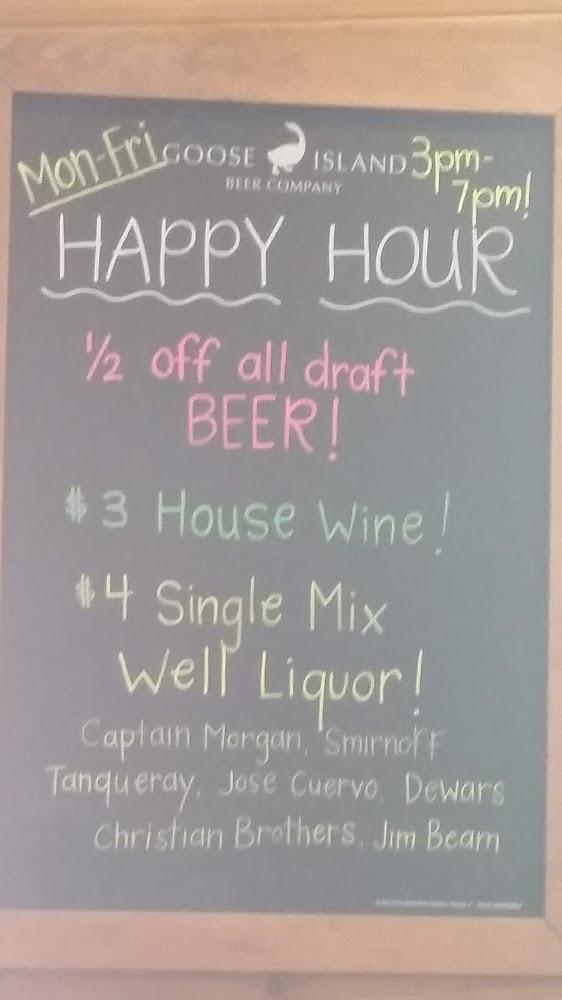 Mon-Fri GOOSE ISLAND 3pm-
BEER COMPANY 7pm!
HAPPY HOUR
½ off all draft
BEER!
$3 House Wine!
$4 Single Mix
Well Liquor!
Captain Morgan, Smirnoff
Tanqueray, Jose Cuervo, Dewars
Christian Brothers, Jim Beam